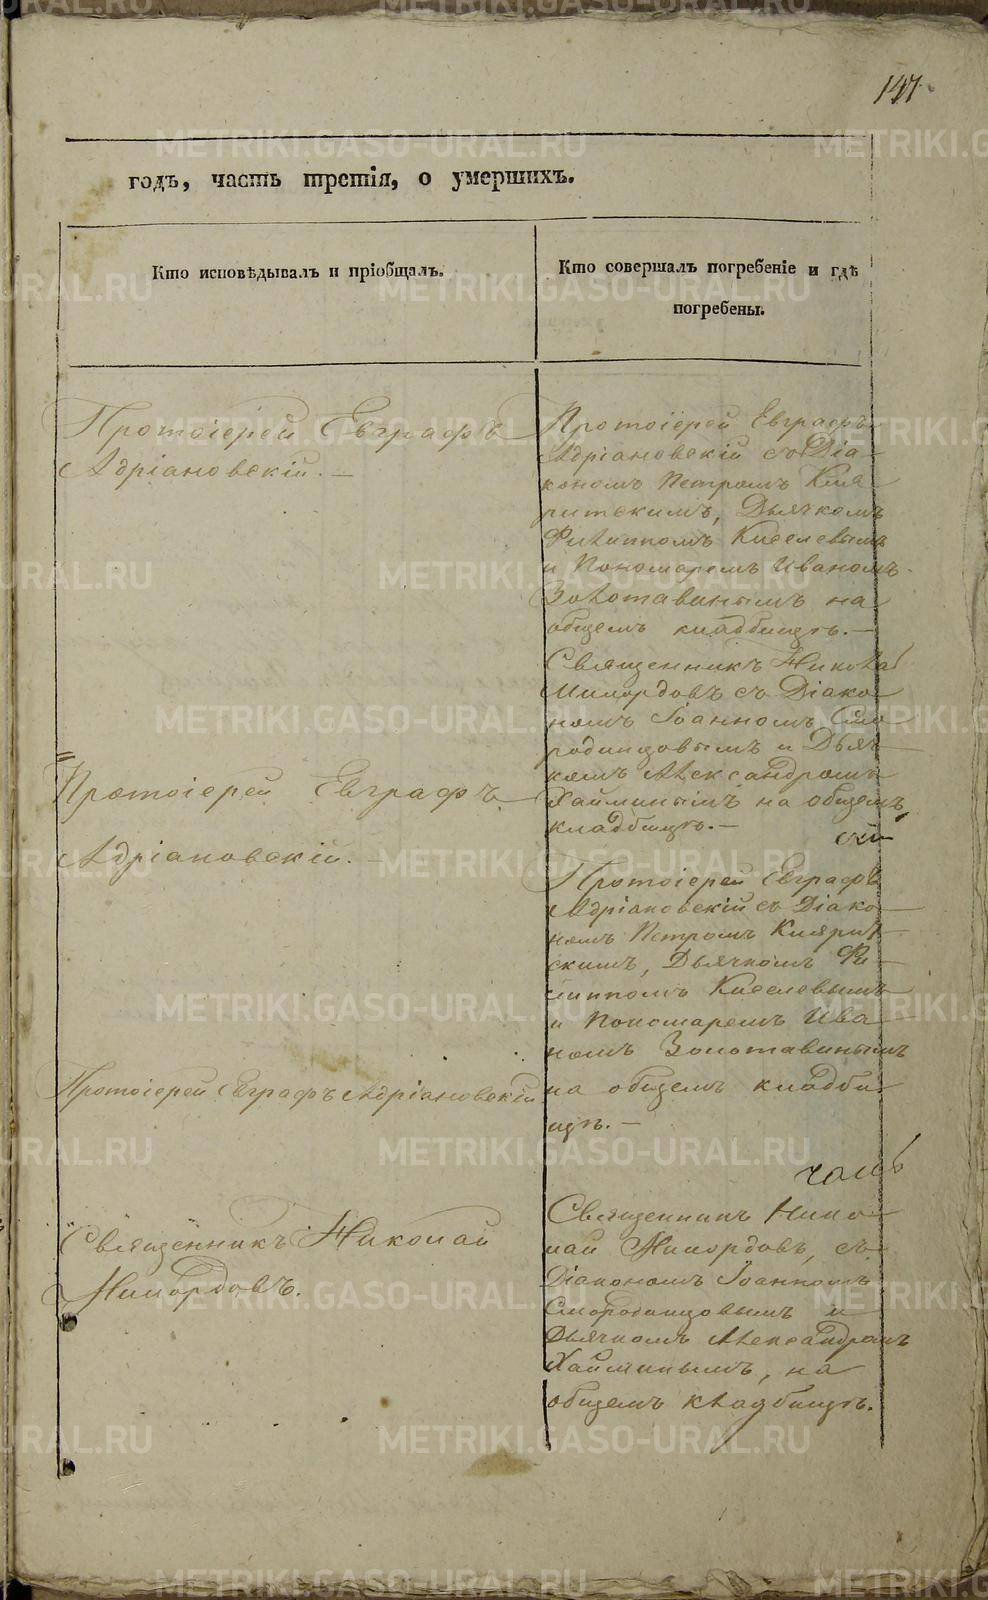 147
годъ, часть третія, о умершихъ.
Кто исповѣдывалъ и пріобщалъ.
Кто совершалъ погребеніе и гдѣ
погребены.
Протоіерей Евграфъ
Адріановскій. —
Протоіерей Евграфъ
Адріановскій съ Діа-
кономъ Петромъ
Дьячкомъ
Филиппомъ Киселевымъ
и Пономаремъ Иваномъ
Золотавинымъ на
общемъ кладбищѣ. —
Священникъ Николай
Милордовъ съ Діако-
номъ Іоанномъ Смо-
родинцовымъ и Дьяч-
комъ Александромъ
Хайминымъ на общемъ
кладбищѣ. —
Протоіерей Евграфъ
Адріановскій. —
Протоіерей Евграфъ
Адріановскій съ Діако-
номъ Петромъ
скимъ, Дьячкомъ Фи-
липпомъ Киселевымъ
и Пономаремъ Ива-
номъ Золотавинымъ
на общемъ кладби-
щѣ. —
Протоіерей Евграфъ Адріановскій
Священникъ Николай
Милордовъ.
Священникъ Нико-
лай Милордовъ, съ
Діакономъ Іоанномъ
Смородинцовымъ и
Дьячкомъ Александромъ
Хайминымъ, на
общемъ кладбищѣ.
METRIKI.GASO-URAL.RU